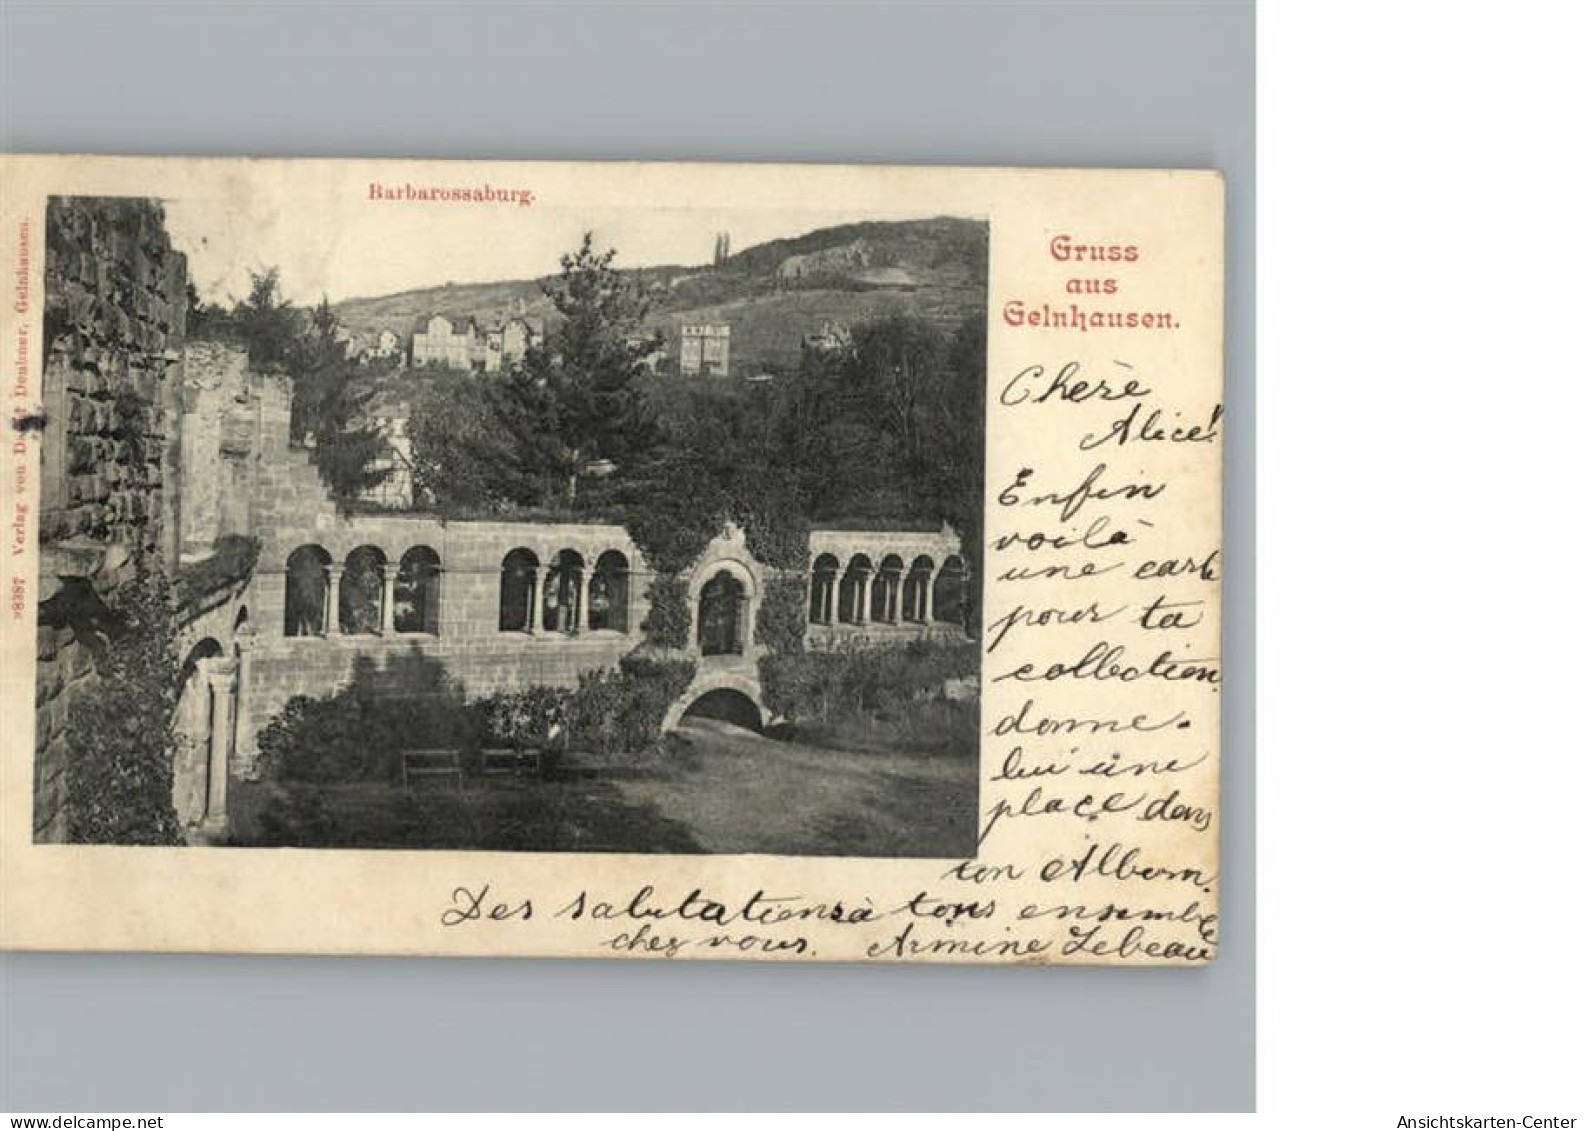 Barbarossaburg.
Gruss
aus
Gelnhausen.
Cherè
Alice!
Enfin
voilà
une carte
pour ta
collection
donne-
lui une
place dans
ton Album.
Des salutations à tous ensemble
chez vous. Armine Lebeau
Verlag von Deubner, Gelnhausen.
delcampe.net
Ansichtskarten-Center